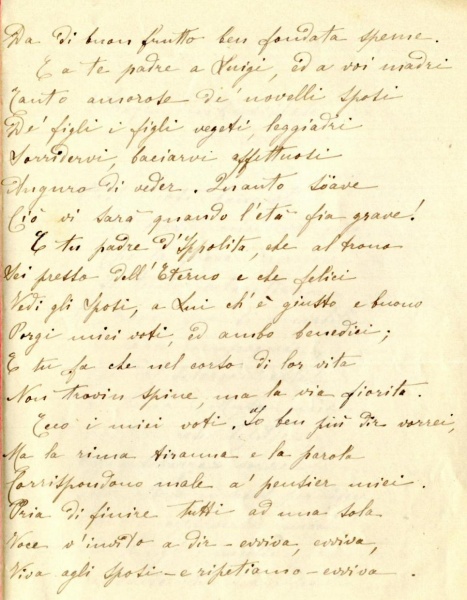 Da di buon frutto ben fondata speme.
E a te padre a Luigi, ed a voi madri
Tanto amorose de' novelli sposi
De' figli i figli vegeti, leggiadri
Sorridervi, baciarvi affettuosi
Auguro di veder. Quanto söave
Ciò vi sarà quando l'età fia grave!
E tu padre d'Ippolita, che al trono
Sei presso dell'Eterno e che felici
Vedi gli Sposi, a Lui ch'è giusto e buono
Porgi miei voti, ed ambo benedici;
E tu fa che nel corso di lor vita
Non trovin spine, ma la via fiorita.
Ecco i miei voti. Io ben più dir vorrei,
Ma la rima tiranna e la parola
Corrispondono male a' pensier miei.
Pria di finire tutti ad una sola
Voce v'invito a dir - evviva, evviva,
Viva agli sposi - e ripetiamo - evviva.